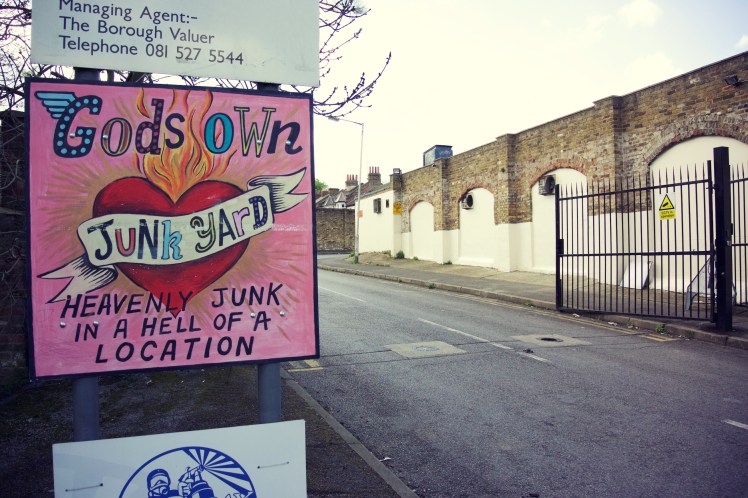 Managing Agent:-
The Borough Valuer
Telephone 081 527 5544
Gods own
Junk yard
HEAVENLY JUNK
IN A HELL OF A
LOCATION